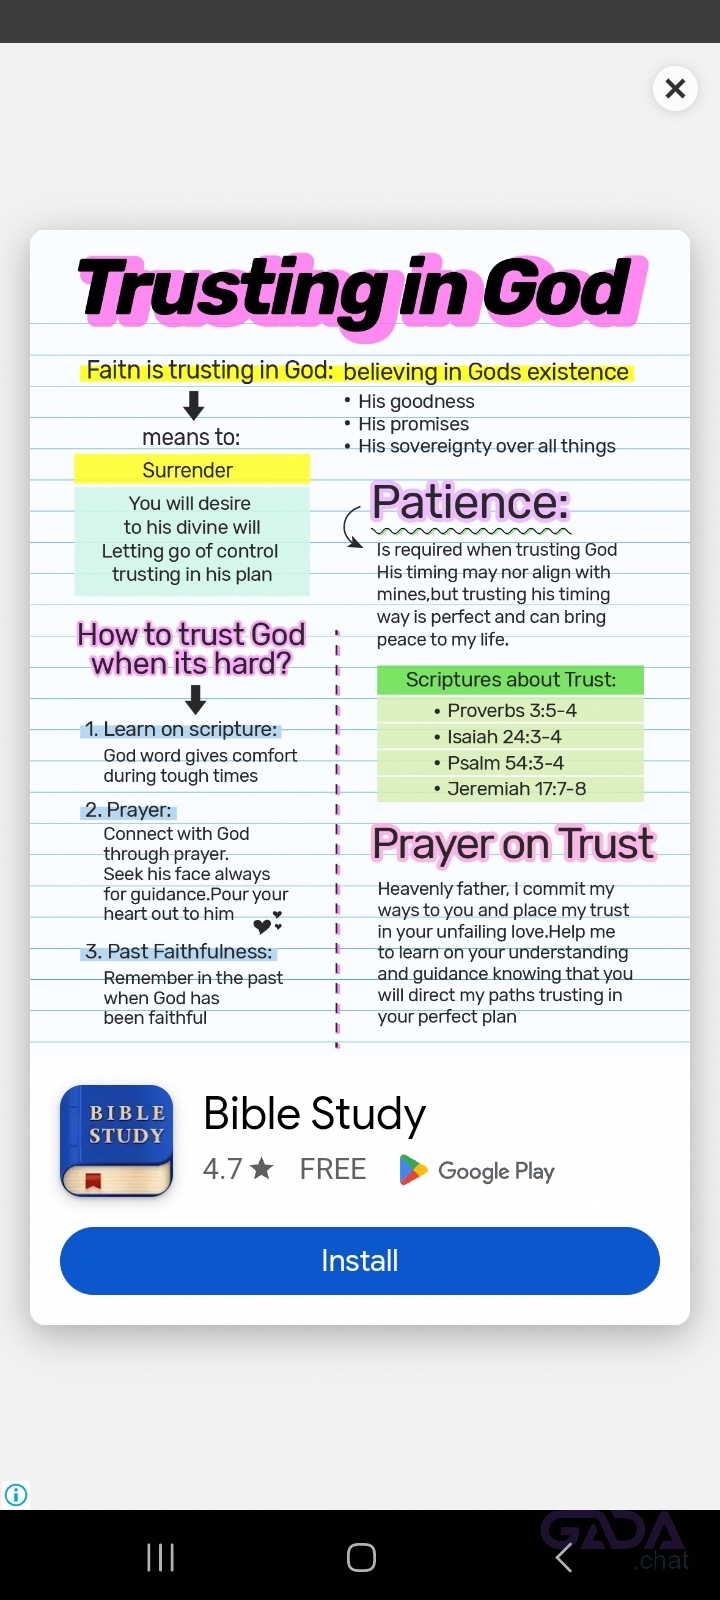 Trusting in God
Faitn is trusting in God: believing in Gods existence
means to:
Surrender
You will desire
to his divine will
Letting go of control
trusting in his plan
• His goodness
• His promises
• His sovereignty over all things
Patience:
Is required when trusting God
His timing may nor align with
mines,but trusting his timing
way is perfect and can bring
peace to my life.
How to trust God
when its hard?
1. Learn on scripture:
God word gives comfort
during tough times
2. Prayer:
Connect with God
through prayer.
Seek his face always
for guidance.Pour your
heart out to him
3. Past Faithfulness:
Remember in the past
when God has
been faithful
Scriptures about Trust:
• Proverbs 3:5-4
• Isaiah 24:3-4
• Psalm 54:3-4
• Jeremiah 17:7-8
Prayer on Trust
Heavenly father, I commit my
ways to you and place my trust
in your unfailing love.Help me
to learn on your understanding
and guidance knowing that you
will direct my paths trusting in
your perfect plan
BIBLE
STUDY
Bible Study
4.7★ FREE Google Play
Install
GADA
.chat